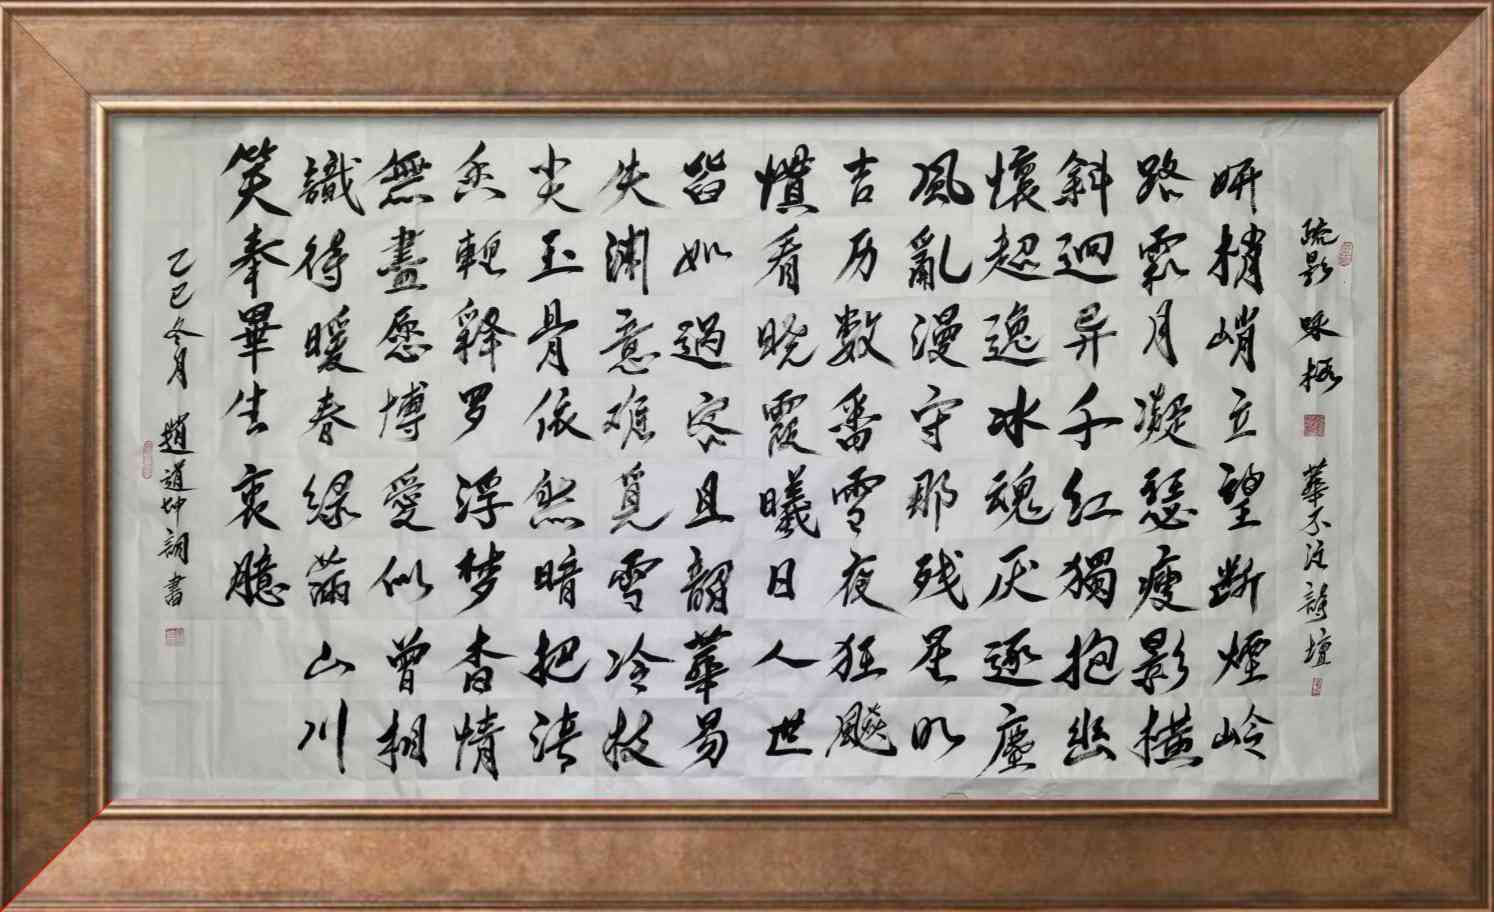 疏影 咏梅 華不注詩壇
妍梢峭立望断煙岭
路月凝瑟瘦影横
斜迴异千红獨抱幽
懷超逸冰魂厌逐塵
風亂漫守那残星
吉历数番雪夜狂飈
慣看晓霞曦日人世
皆如過客且韶華易
失渊意难覓雪冷枝
尖玉骨依然暗把清
香輕释罗浮梦杳情
無盡愿博愛似曾相
識得暖春绿滿山川
笑奉畢生衷臆
乙巳冬月 趙道坤詞書